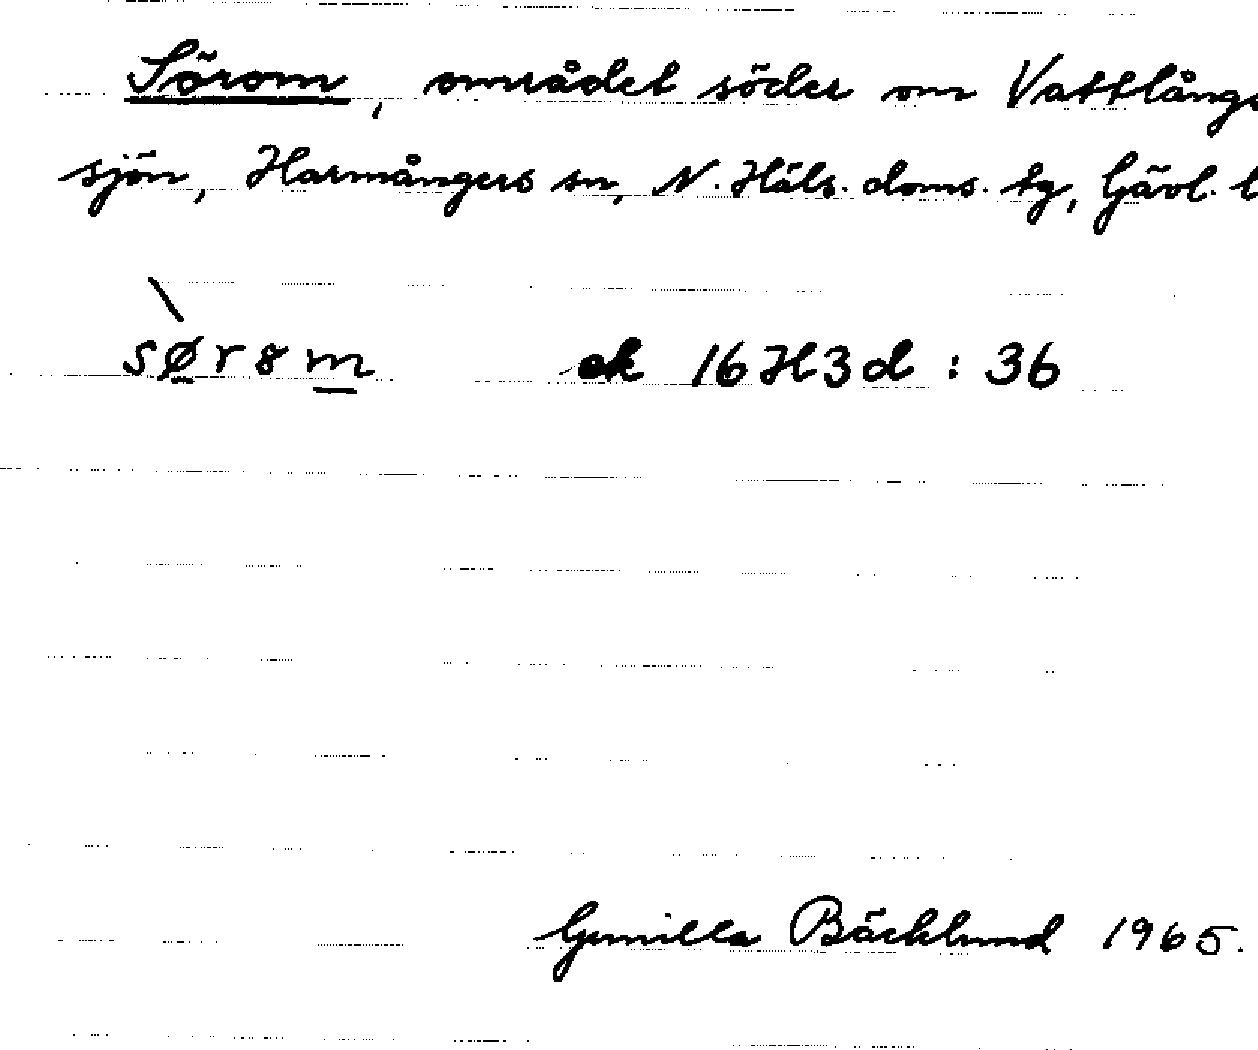 Sörom, området söder om Vattlångs
sjön, Harmångers sn, N. Häls. doms. tg, Gävl. l
sørɞm ek 16H3d : 36
Gunilla Bäcklund 1965.